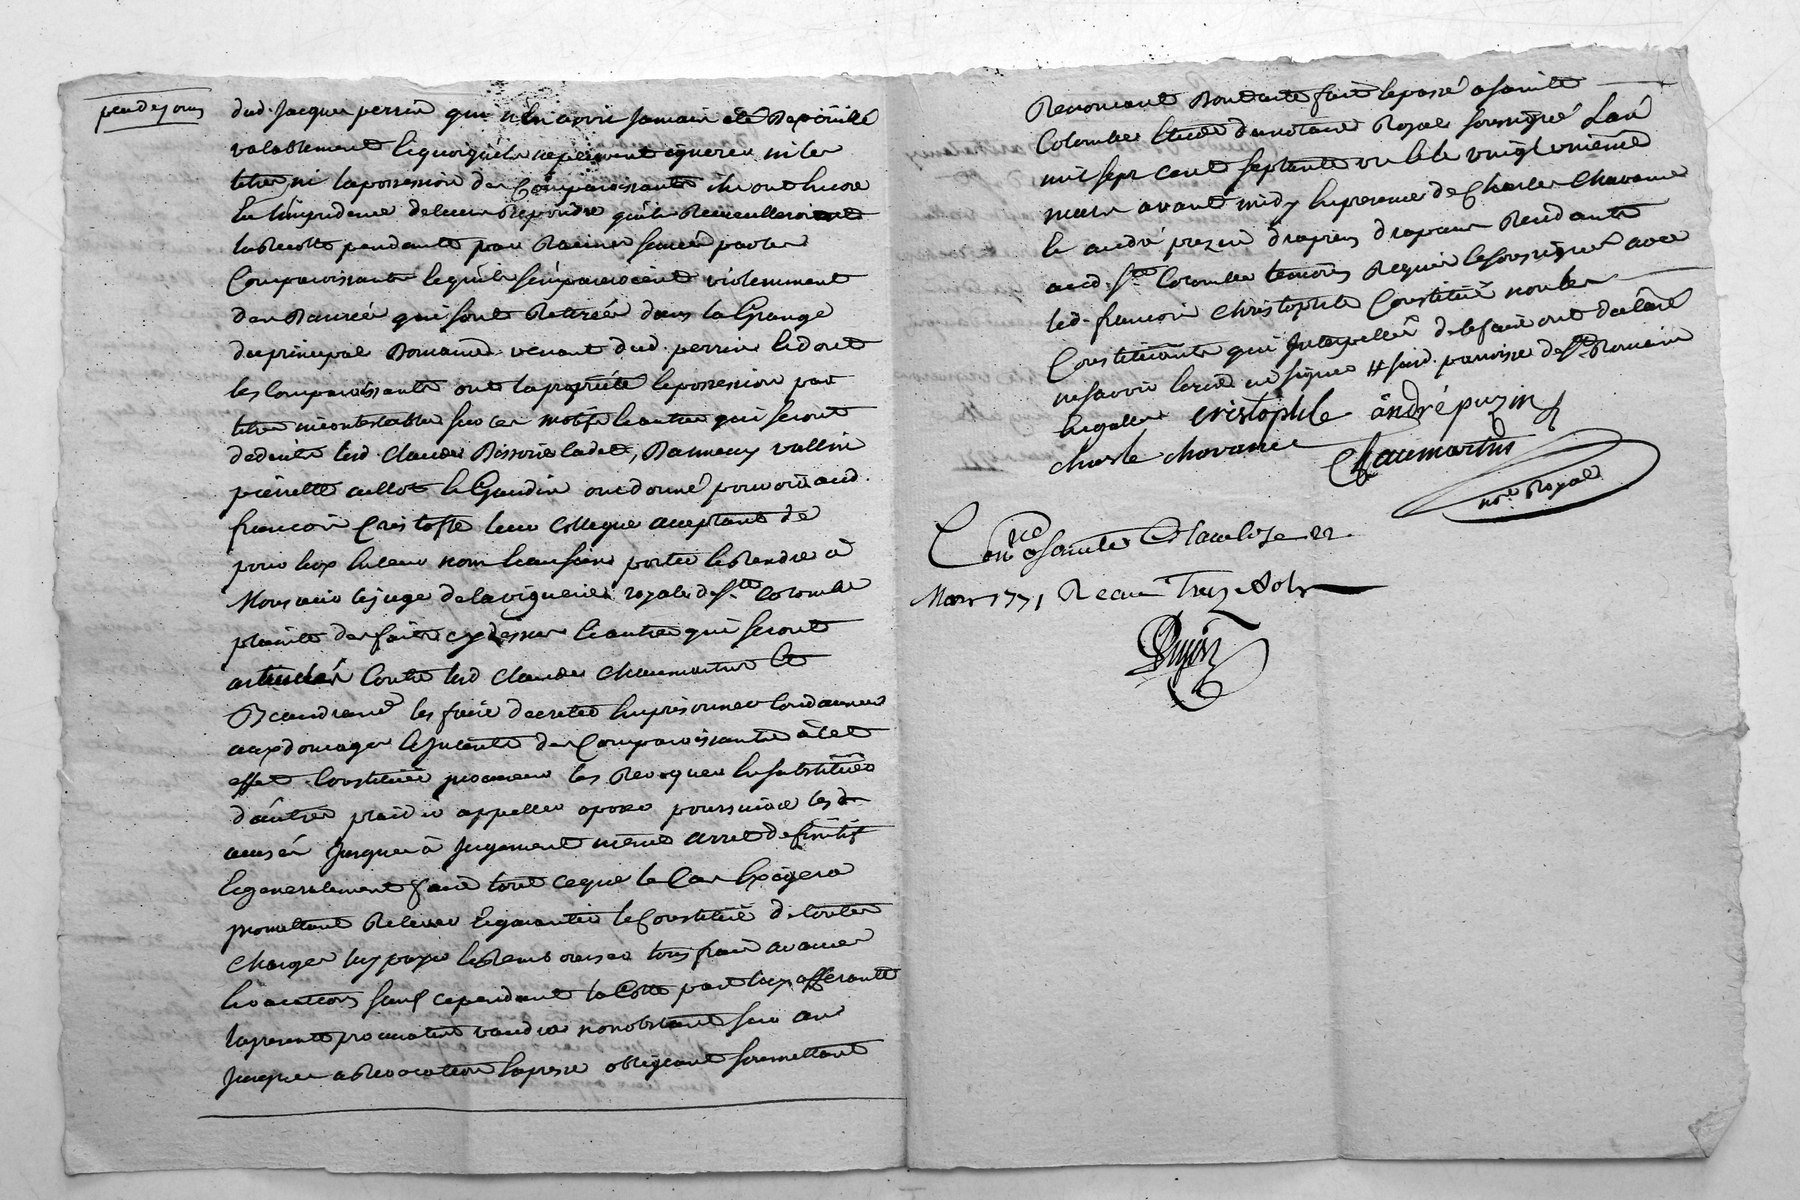 peu de jours
dud. Jacques perrin qui n'en avoir jamais été
valablement et quoiqu'ils ne peuvent ignorer ni les
titres ni la possession des Comparoissants ils ont encore
l'impudence de leur repondre qu'ils recueilleroient
la recolte pendante par racines semée par les
Comparoissants et qu'ils s'empareroient violemment
des qui sont retirée dans la Grange
du principal Domaine venant dud. perrin et dont
les comparoissants ont la propriété et possession par
titre incontestable sur ces motifs et autres qui seront
deduits lesd. Claude cadet, vallin
pierrette et Gaudin ont donné pouvoir aud.
françois Cristofle leur Collegue acceptant de
pour eux en leur nom et au sien porter et rendre à
Monsieur le juge de la viguerie royale de Ste Colombe
plainte des faits cy dessus et autres qui seront
articulés contre led Claude Chaumartin et
les faire decreter emprisonner condamner
aux domages et interets des Comparoissants à cet
effet constituer procureur les revoquer en substituer
d'autres plaider appeller oposer poursuivre lesd
accusés jusques à jugement même arret definitif
et generalement faire tout ce que le Cas Exigera
promettant relever et garantir le Constitué de toutes
charges luy payer et rembourser tous frais avances
et vacations sauf cependant la Cotte part luy afferante
la presente procuration vaudra nonobstant sur an
jusques a revocation expresse obligeant soumettant
Renonceant dont acte fait et passé a sainte
Colombe Etude du notaire Royal soussigné L'an
mil sept cent septante un et le vingt unieme
mars avant midy En presence de Charles Chavance
et andré puzin drapiers drapant Residants
aud. Ste Colombe temoins Requis et soussignés avec
led. françois Christophle Constitué non les
Constituants qui Interpellés de le faire ont declaré
ne savoir ecrire ni signer # sur parroisse de St Romain
en galle cristophle andré puzin
charle chovance Chaumartin
nore Royal
Con.lé a Sainte Colombe le 22
Mars 1771 Recu Treize sols